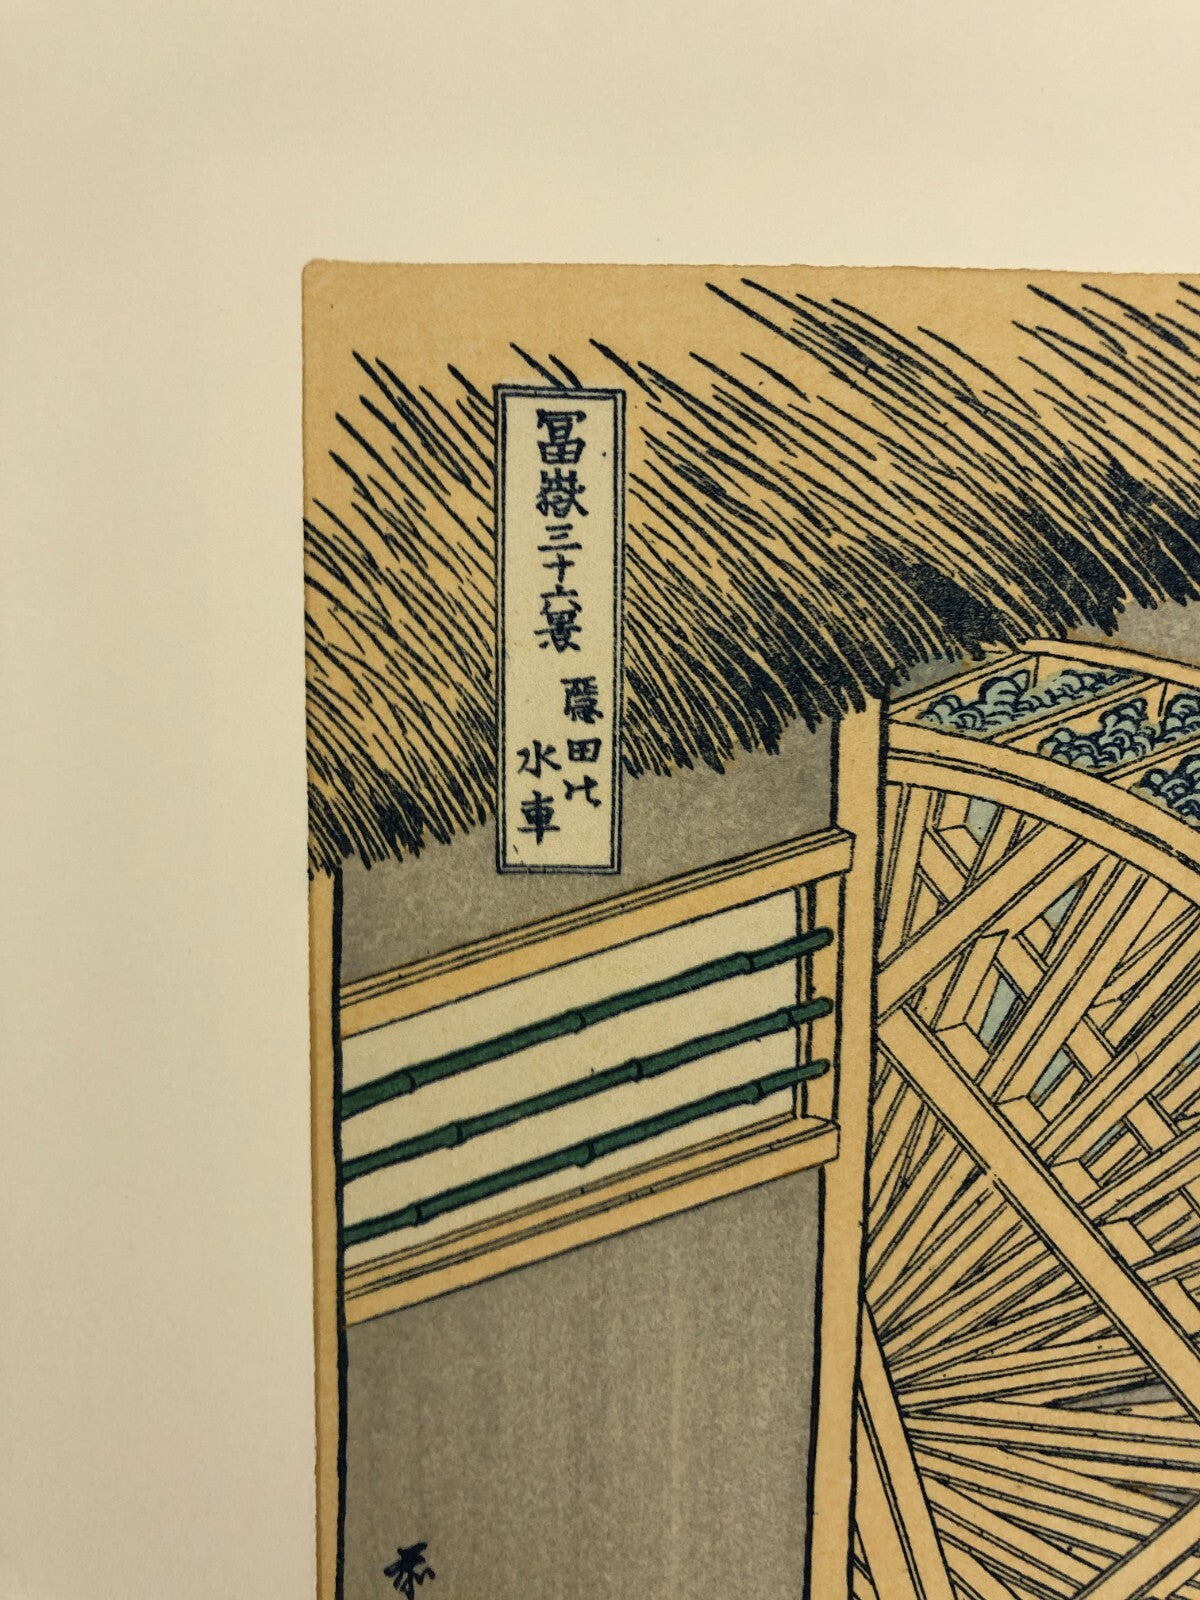 冨嶽三十六景
隠田の
水車